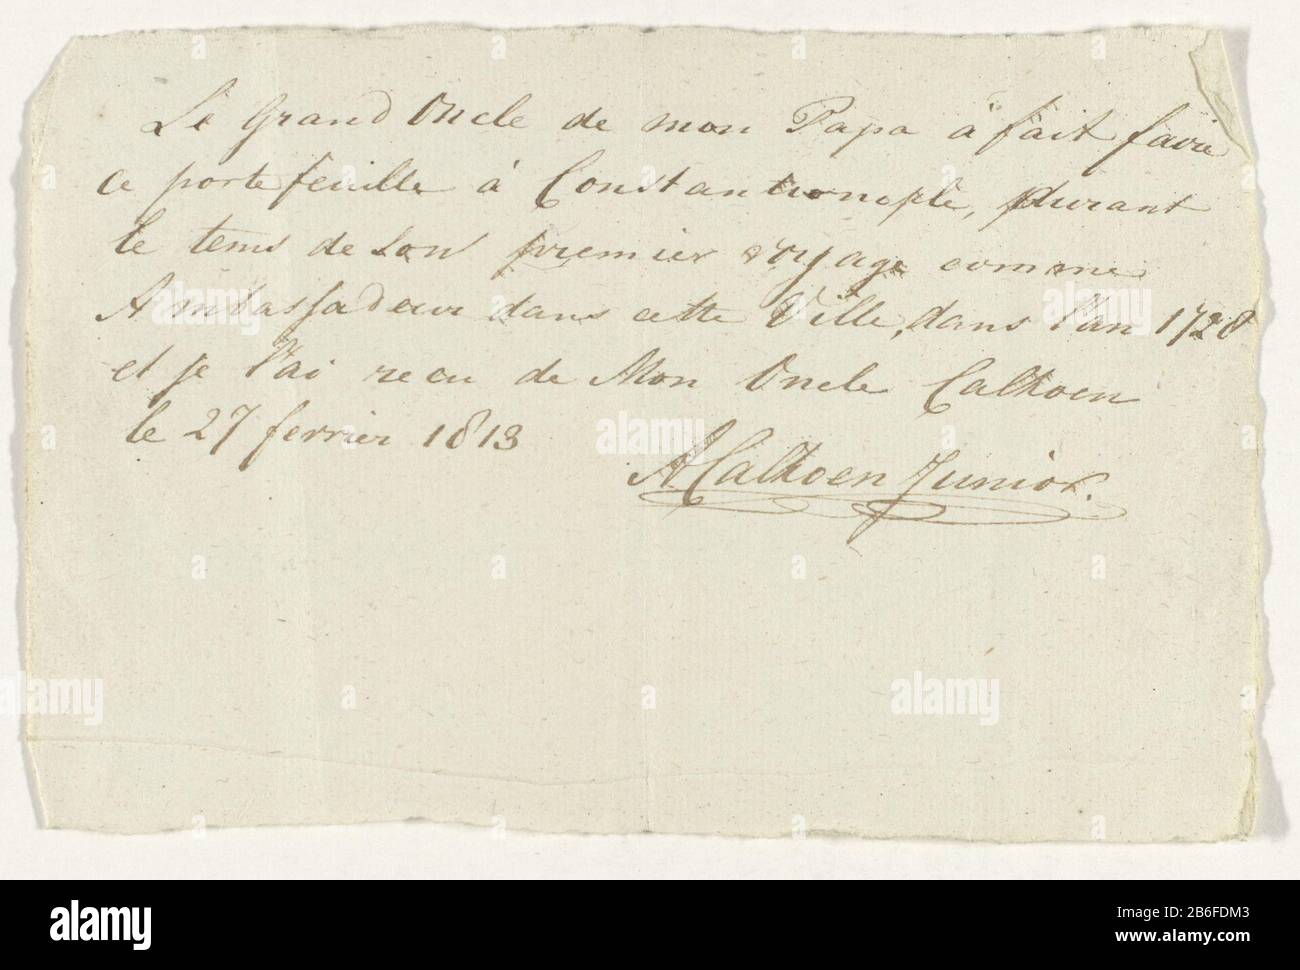 Le Grand Oncle de mon Papa à fait faire
ce porte feuille à Constantionople, durant
le tems de son premier voyage comme
Ambassadeur dans cette Ville, dans l'an 1728
et je l'ai recu de Mon Oncle Calkoen
le 27 fevrier 1813
A Calkoen Junior.
alamy
Image ID: 2B6FDM3
www.alamy.com